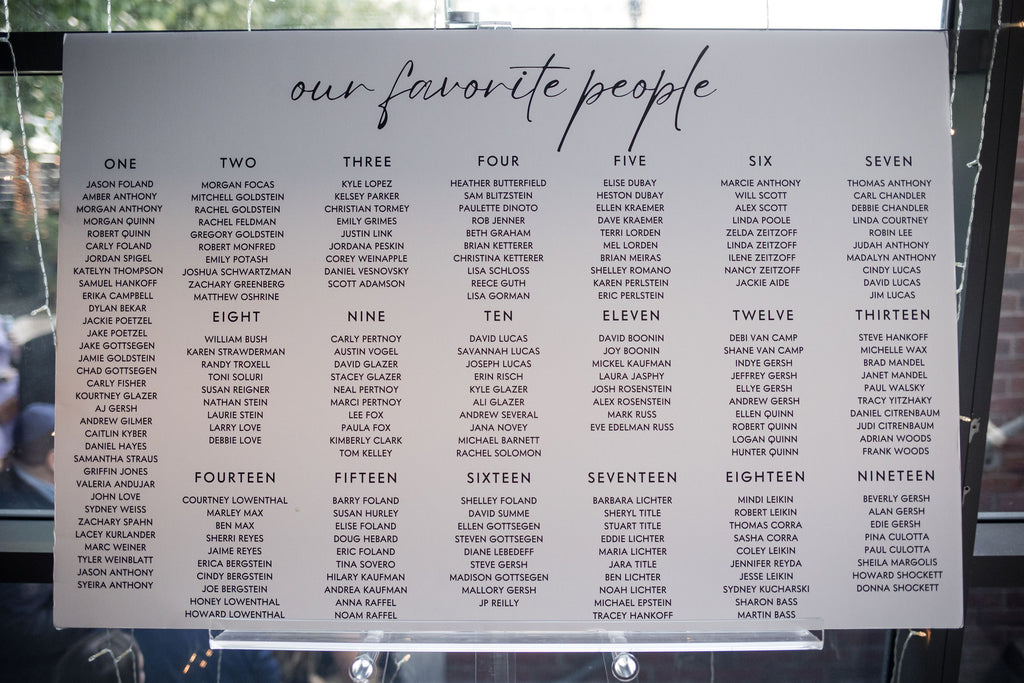 our favorite people
ONE
JASON FOLAND
AMBER ANTHONY
MORGAN ANTHONY
MORGAN QUINN
ROBERT QUINN
CARLY FOLAND
JORDAN SPIGEL
KATELYN THOMPSON
SAMUEL HANKOFF
ERIKA CAMPBELL
DYLAN BEKAR
JACKIE POETZEL
JAKE POETZEL
JAKE GOTTSEGEN
JAMIE GOLDSTEIN
CHAD GOTTSEGEN
CARLY FISHER
KOURTNEY GLAZER
AJ GERSH
ANDREW GILMER
CAITLIN KYBER
DANIEL HAYES
SAMANTHA STRAUS
GRIFFIN JONES
VALERIA ANDUJAR
JOHN LOVE
SYDNEY WEISS
ZACHARY SPAHN
LACEY KURLANDER
MARC WEINER
TYLER WEINBLATT
JASON ANTHONY
SYEIRA ANTHONY
TWO
MORGAN FOCAS
MITCHELL GOLDSTEIN
RACHEL GOLDSTEIN
RACHEL FELDMAN
GREGORY GOLDSTEIN
ROBERT MONFRED
EMILY POTASH
JOSHUA SCHWARTZMAN
ZACHARY GREENBERG
MATTHEW OSHRINE
THREE
KYLE LOPEZ
KELSEY PARKER
CHRISTIAN TORMEY
EMILY GRIMES
JUSTIN LINK
JORDANA PESKIN
COREY WEINAPPLE
DANIEL VESNOVSKY
SCOTT ADAMSON
FOUR
HEATHER BUTTERFIELD
SAM BLITZSTEIN
PAULETTE DINOTO
ROB JENNER
BETH GRAHAM
BRIAN KETTERER
CHRISTINA KETTERER
LISA SCHLOSS
REECE GUTH
LISA GORMAN
FIVE
ELISE DUBAY
HESTON DUBAY
ELLEN KRAEMER
DAVE KRAEMER
TERRI LORDEN
MEL LORDEN
BRIAN MEIRAS
SHELLEY ROMANO
KAREN PERLSTEIN
ERIC PERLSTEIN
SIX
MARCIE ANTHONY
WILL SCOTT
ALEX SCOTT
LINDA POOLE
ZELDA ZEITZOFF
LINDA ZEITZOFF
ILENE ZEITZOFF
NANCY ZEITZOFF
JACKIE AIDE
SEVEN
THOMAS ANTHONY
CARL CHANDLER
DEBBIE CHANDLER
LINDA COURTNEY
ROBIN LEE
JUDAH ANTHONY
MADALYN ANTHONY
CINDY LUCAS
DAVID LUCAS
JIM LUCAS
EIGHT
WILLIAM BUSH
KAREN STRAWDERMAN
RANDY TROXELL
TONI SOLURI
SUSAN REIGNER
NATHAN STEIN
LAURIE STEIN
LARRY LOVE
DEBBIE LOVE
NINE
CARLY PERTNOY
AUSTIN VOGEL
DAVID GLAZER
STACEY GLAZER
NEAL PERTNOY
MARCI PERTNOY
LEE FOX
PAULA FOX
KIMBERLY CLARK
TOM KELLEY
TEN
DAVID LUCAS
SAVANNAH LUCAS
JOSEPH LUCAS
ERIN RISCH
KYLE GLAZER
ALI GLAZER
ANDREW SEVERAL
JANA NOVEY
MICHAEL BARNETT
RACHEL SOLOMON
ELEVEN
DAVID BOONIN
JOY BOONIN
MICKEL KAUFMAN
LAURA JASPHY
JOSH ROSENSTEIN
ALEX ROSENSTEIN
MARK RUSS
EVE EDELMAN RUSS
TWELVE
DEBI VAN CAMP
SHANE VAN CAMP
INDYE GERSH
JEFFREY GERSH
ELLYE GERSH
ANDREW GERSH
ELLEN QUINN
ROBERT QUINN
LOGAN QUINN
HUNTER QUINN
THIRTEEN
STEVE HANKOFF
MICHELLE WAX
BRAD MANDEL
JANET MANDEL
PAUL WALSKY
TRACY YITZHAKY
DANIEL CITRENBAUM
JUDI CITRENBAUM
ADRIAN WOODS
FRANK WOODS
FOURTEEN
COURTNEY LOWENTHAL
MARLEY MAX
BEN MAX
SHERRI REYES
JAIME REYES
ERICA BERGSTEIN
CINDY BERGSTEIN
JOE BERGSTEIN
HONEY LOWENTHAL
HOWARD LOWENTHAL
FIFTEEN
BARRY FOLAND
SUSAN HURLEY
ELISE FOLAND
DOUG HEBARD
ERIC FOLAND
TINA SOVERO
HILARY KAUFMAN
ANDREA KAUFMAN
ANNA RAFFEL
NOAM RAFFEL
SIXTEEN
SHELLEY FOLAND
DAVID SUMME
ELLEN GOTTSEGEN
STEVEN GOTTSEGEN
DIANE LEBEDEFF
STEVE GERSH
MADISON GOTTSEGEN
MALLORY GERSH
JP REILLY
SEVENTEEN
BARBARA LICHTER
SHERYL TITLE
STUART TITLE
EDDIE LICHTER
MARIA LICHTER
JARA TITLE
BEN LICHTER
NOAH LICHTER
MICHAEL EPSTEIN
TRACEY HANKOFF
EIGHTEEN
MINDI LEIKIN
ROBERT LEIKIN
THOMAS CORRA
SASHA CORRA
COLEY LEIKIN
JENNIFER REYDA
JESSE LEIKIN
SYDNEY KUCHARSKI
SHARON BASS
MARTIN BASS
NINETEEN
BEVERLY GERSH
ALAN GERSH
EDIE GERSH
PINA CULOTTA
PAUL CULOTTA
SHEILA MARGOLIS
HOWARD SHOCKETT
DONNA SHOCKETT